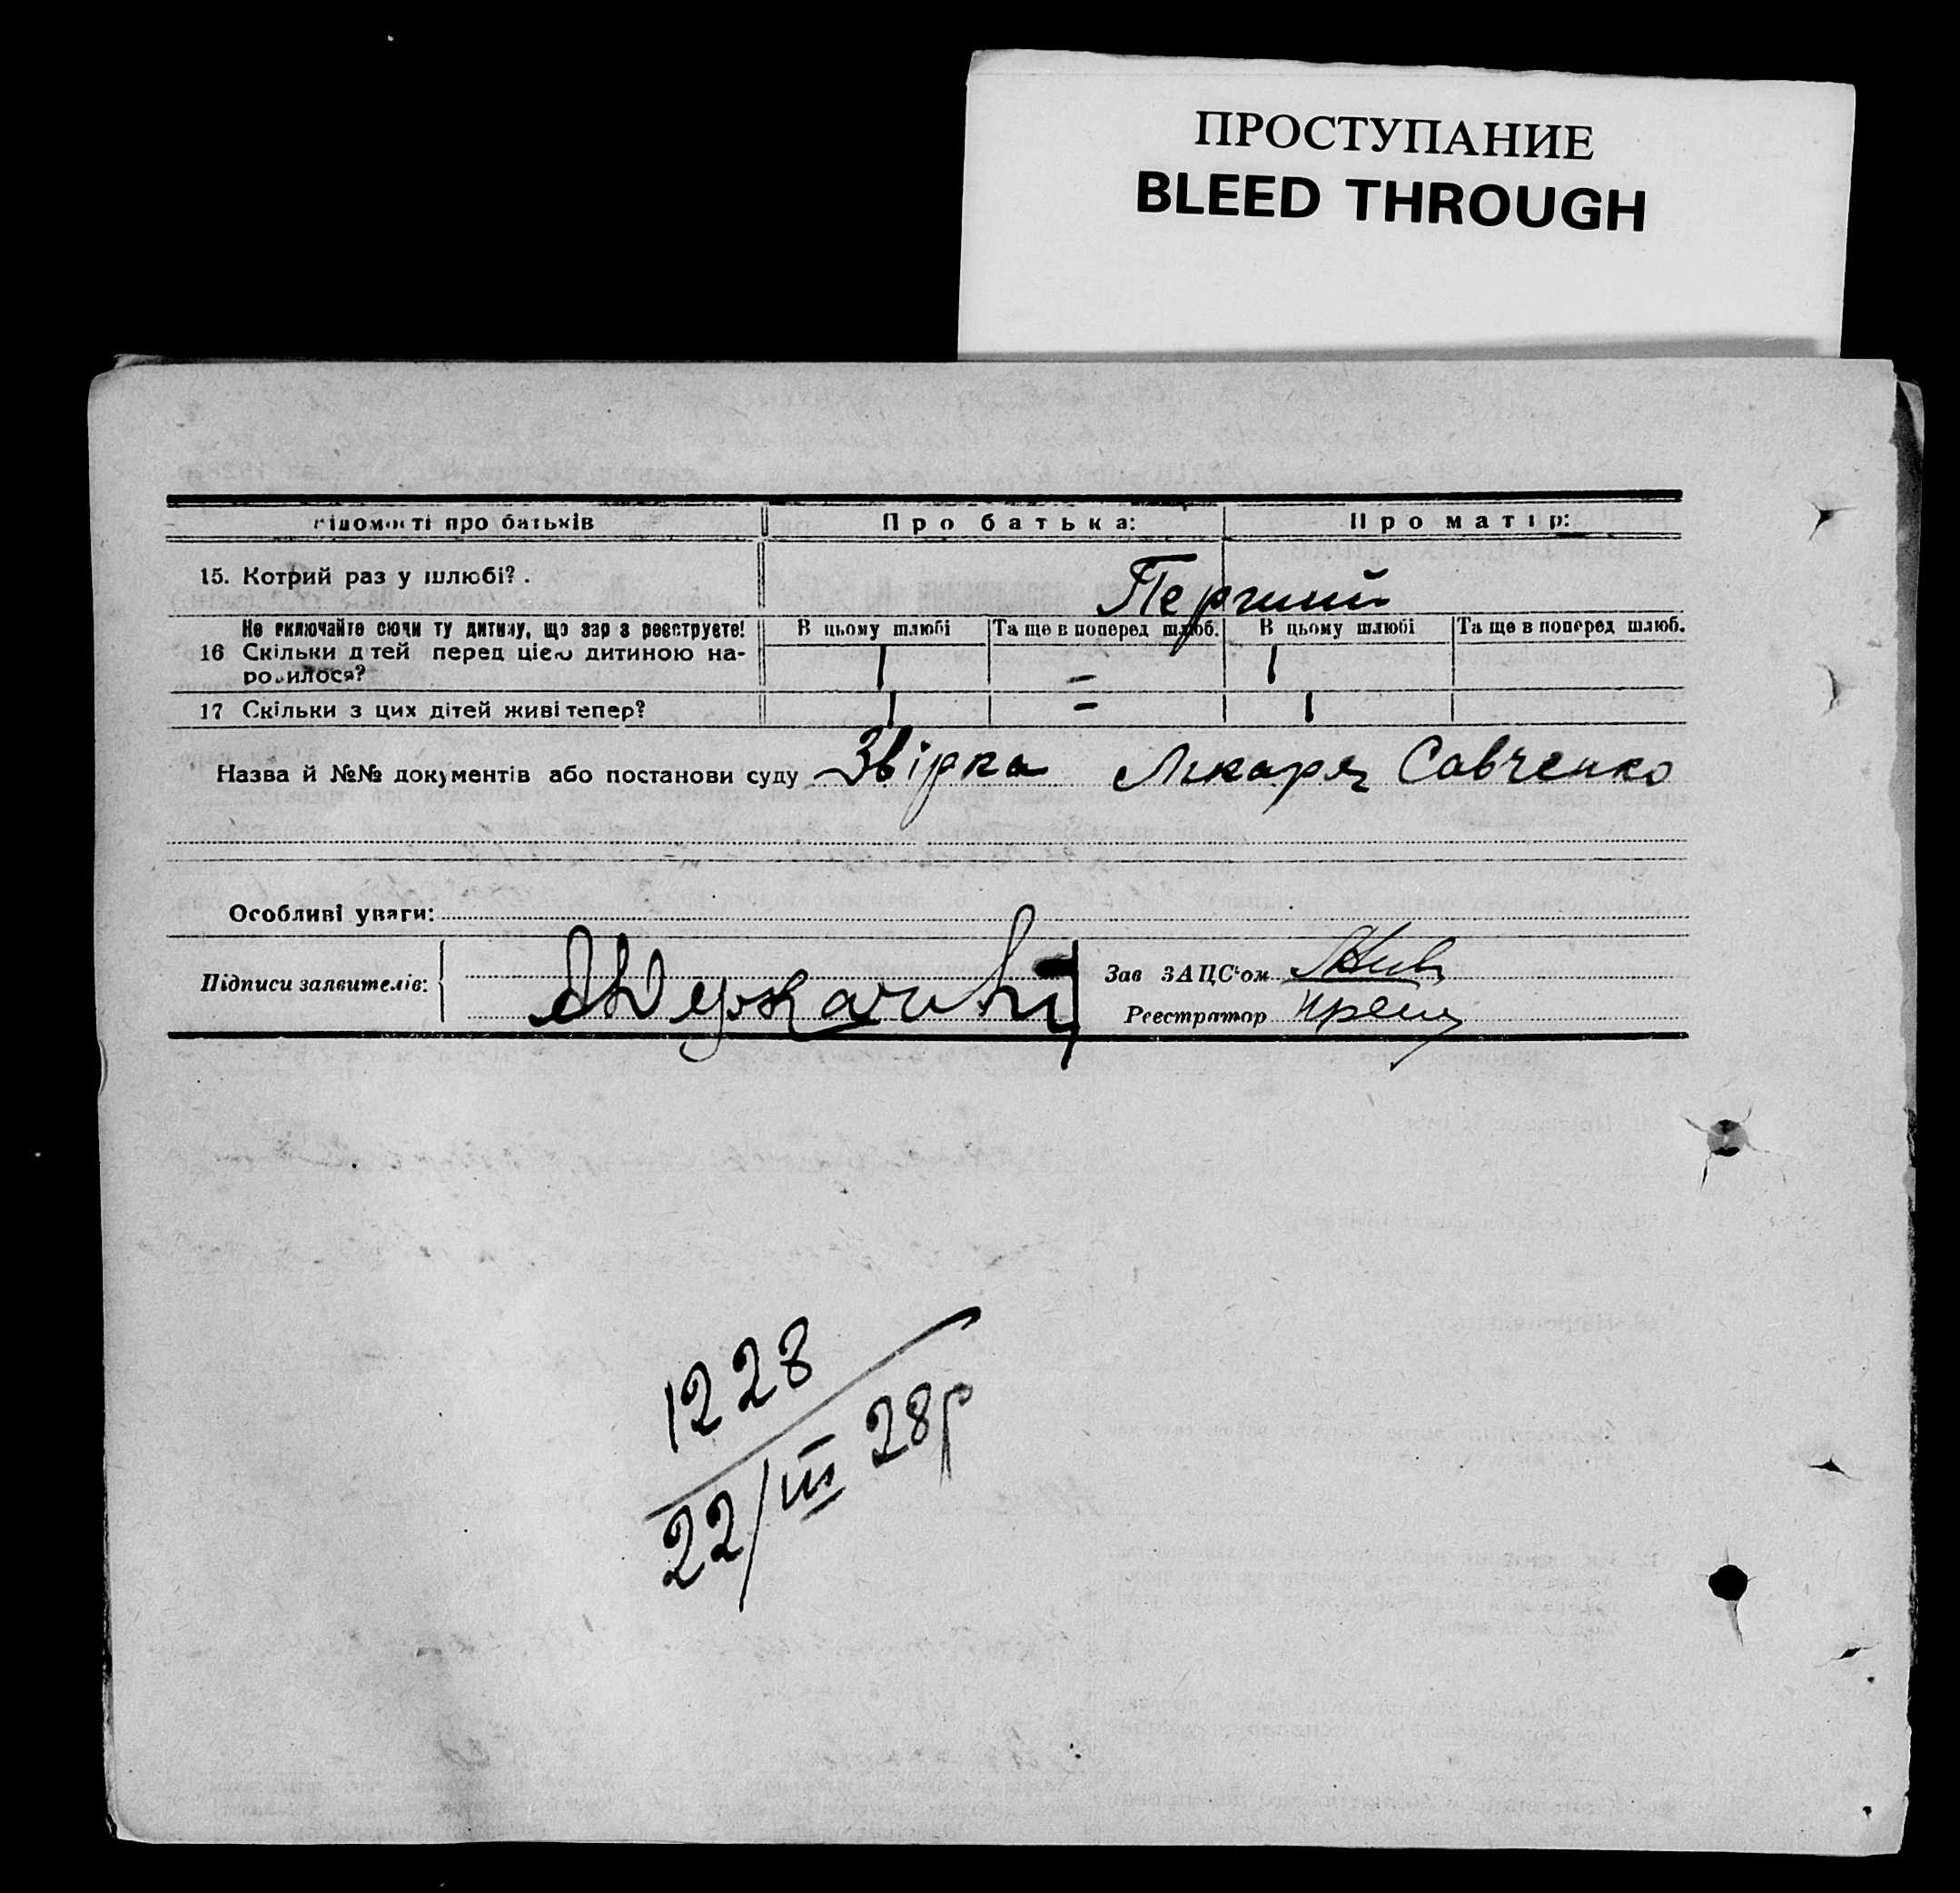 ПРОСТУПАНИЕ
BLEED THROUGH
відомості про батьків Про батька: Про матір:
15. Котрий раз у шлюбі? . Перший
Не включайте сюди ту дитину, що зараз реєструєте! В цьому шлюбі Та ще в поперед шлюб. В цьому шлюбі Та ще в поперед шлюб.
16 Скільки дітей перед цією дитиною на- 1 – 1
родилося?
17 Скільки з цих дітей живі тепер? 1 – 1
Назва й №№ документів або постанови суду Звірка Лікаря Савченко
Особливі уваги:
Підписи заявителів: Зав ЗАЦС'ом
Реєстратор
1228
22/III 28р